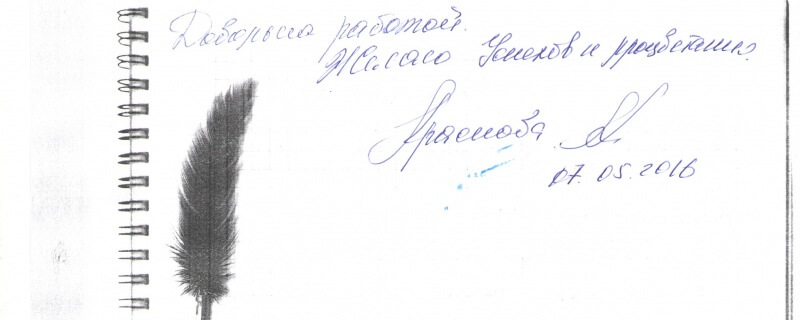 Довольна работой.
Желаю Успехов и процветания.
Краснова
07.05.2016